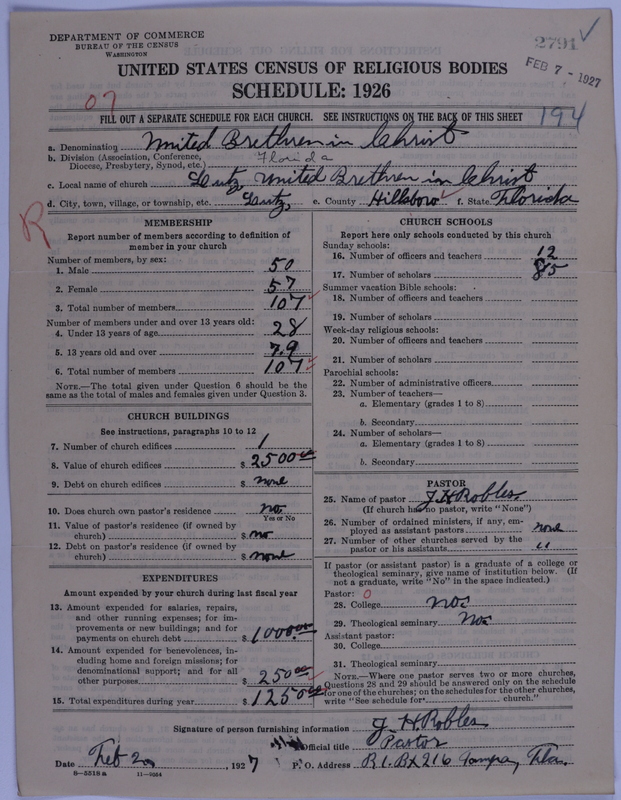 DEPARTMENT OF COMMERCE
BUREAU OF THE CENSUS
WASHINGTON
2791
FEB 7 - 1927
UNITED STATES CENSUS OF RELIGIOUS BODIES
SCHEDULE: 1926
07
194
FILL OUT A SEPARATE SCHEDULE FOR EACH CHURCH. SEE INSTRUCTIONS ON THE BACK OF THIS SHEET
a. Denomination United Brethren in Christ
b. Division (Association, Conference, Diocese, Presbytery, Synod, etc.) Florida
c. Local name of church Lutz, United Brethren in Christ
d. City, town, village, or township, etc. Lutz, e. County Hillsboro f. State Florida
R
MEMBERSHIP
Report number of members according to definition of
member in your church
Number of members, by sex:
1. Male 50
2. Female 57
3. Total number of members 107
Number of members under and over 13 years old:
4. Under 13 years of age 28
5. 13 years old and over 79
6. Total number of members 107
NOTE.—The total given under Question 6 should be the
same as the total of males and females given under Question 3.
CHURCH BUILDINGS
See instructions, paragraphs 10 to 12
7. Number of church edifices 1
8. Value of church edifices $ 2500 00
9. Debt on church edifices $ none
10. Does church own pastor's residence no
Yes or No
11. Value of pastor's residence (if owned by
church) $ no
12. Debt on pastor's residence (if owned by
church) $ none
EXPENDITURES
Amount expended by your church during last fiscal year
13. Amount expended for salaries, repairs,
and other running expenses; for im-
provements or new buildings; and for
payments on church debt $ 1000 00
14. Amount expended for benevolences, in-
cluding home and foreign missions; for
denominational support; and for all
other purposes $ 250 00
15. Total expenditures during year $ 1250 00
CHURCH SCHOOLS
Report here only schools conducted by this church
Sunday schools:
16. Number of officers and teachers 12
17. Number of scholars 85
Summer vacation Bible schools:
18. Number of officers and teachers
19. Number of scholars
Week-day religious schools:
20. Number of officers and teachers
21. Number of scholars
Parochial schools:
22. Number of administrative officers
23. Number of teachers—
a. Elementary (grades 1 to 8)
b. Secondary
24. Number of scholars—
a. Elementary (grades 1 to 8)
b. Secondary
PASTOR
25. Name of pastor J H Robles
(If church has no pastor, write "None")
26. Number of ordained ministers, if any, em-
ployed as assistant pastors none
27. Number of other churches served by the
pastor or his assistants "
If pastor (or assistant pastor) is a graduate of a college or
theological seminary, give name of institution below. (If
not a graduate, write "No" in the space indicated.)
Pastor: 0
28. College no
29. Theological seminary No
Assistant pastor:
30. College
31. Theological seminary
NOTE.—Where one pastor serves two or more churches,
Questions 28 and 29 should be answered only on the schedule
for one of the churches; on the schedules for the other churches,
write "See schedule for church."
Signature of person furnishing information J. H Robles
Official title Pastor
Date Feb 2, 1927 P. O. Address R 1. Bx 216 Tampa, Fla.
8—5518a 11—9664